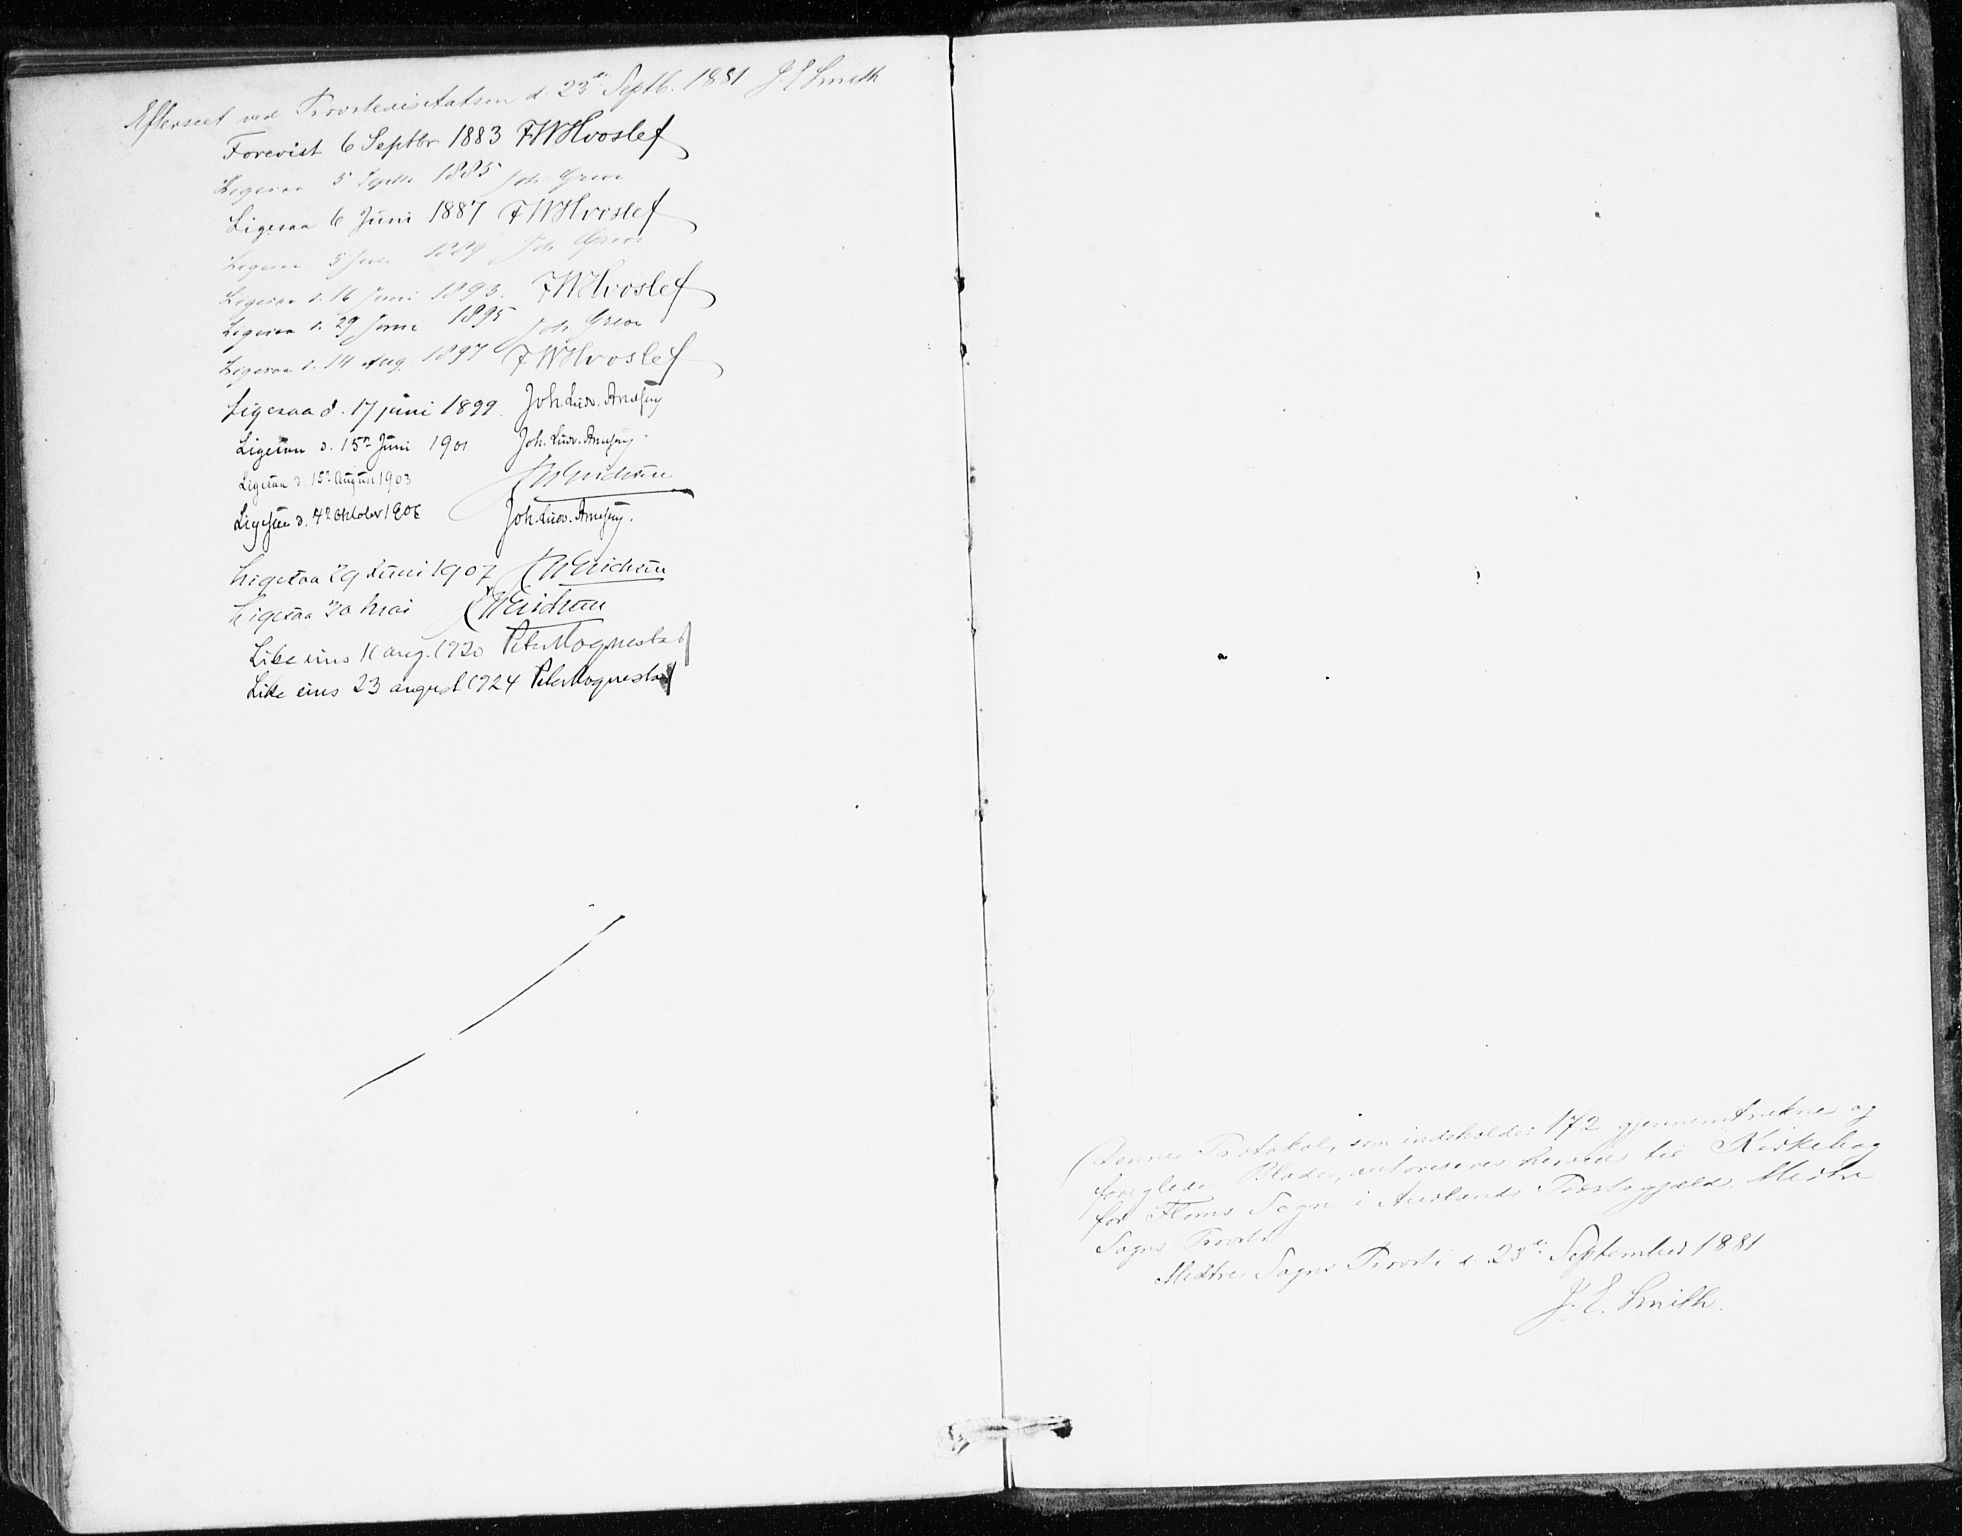 Efterseet ved Provstevisitatsen d. 23de Septb. 1881 J. E Smith
Forevist 6 Septbr 1883 FWHvoslef
Ligesaa 5 Septb 1885 Joh. Greve
Ligesaa 6 Juni 1887 FWHvoslef
Ligesaa 5 1889 Joh Greve
Ligesaa d. 16 Juni 1893. FWHvoslef
Ligesaa d. 29 Juni 1895 Joh. Greve
Ligesaa d. 14 Aug. 1897 FWHvoslef
Ligesaa d. 17 juni 1899. Joh. Ludv.
Ligesaa d. 15de Juni 1901 Joh. Ludv.
Ligesaa d. 15de August 1903
Ligesaa d. 4de Oktober 1906 Joh. Ludv.
Ligesaa 29 Juni 1907
Ligesaa 30 Mai
Like eins 11 aug. 1920 Peter Mognestad
Like eins 23 august 1924 Peter Mognestad
Denne Protokol, som indeholder 172 gjennemtrukne og
forseglede Blade, autoriseres herved til Kirkebog
for Floms Sogn i Aurlands Præstegjæld. Midtre
Sogns Provsti
Midtre Sogns Provsti d. 23de September 1881
J. E. Smith.